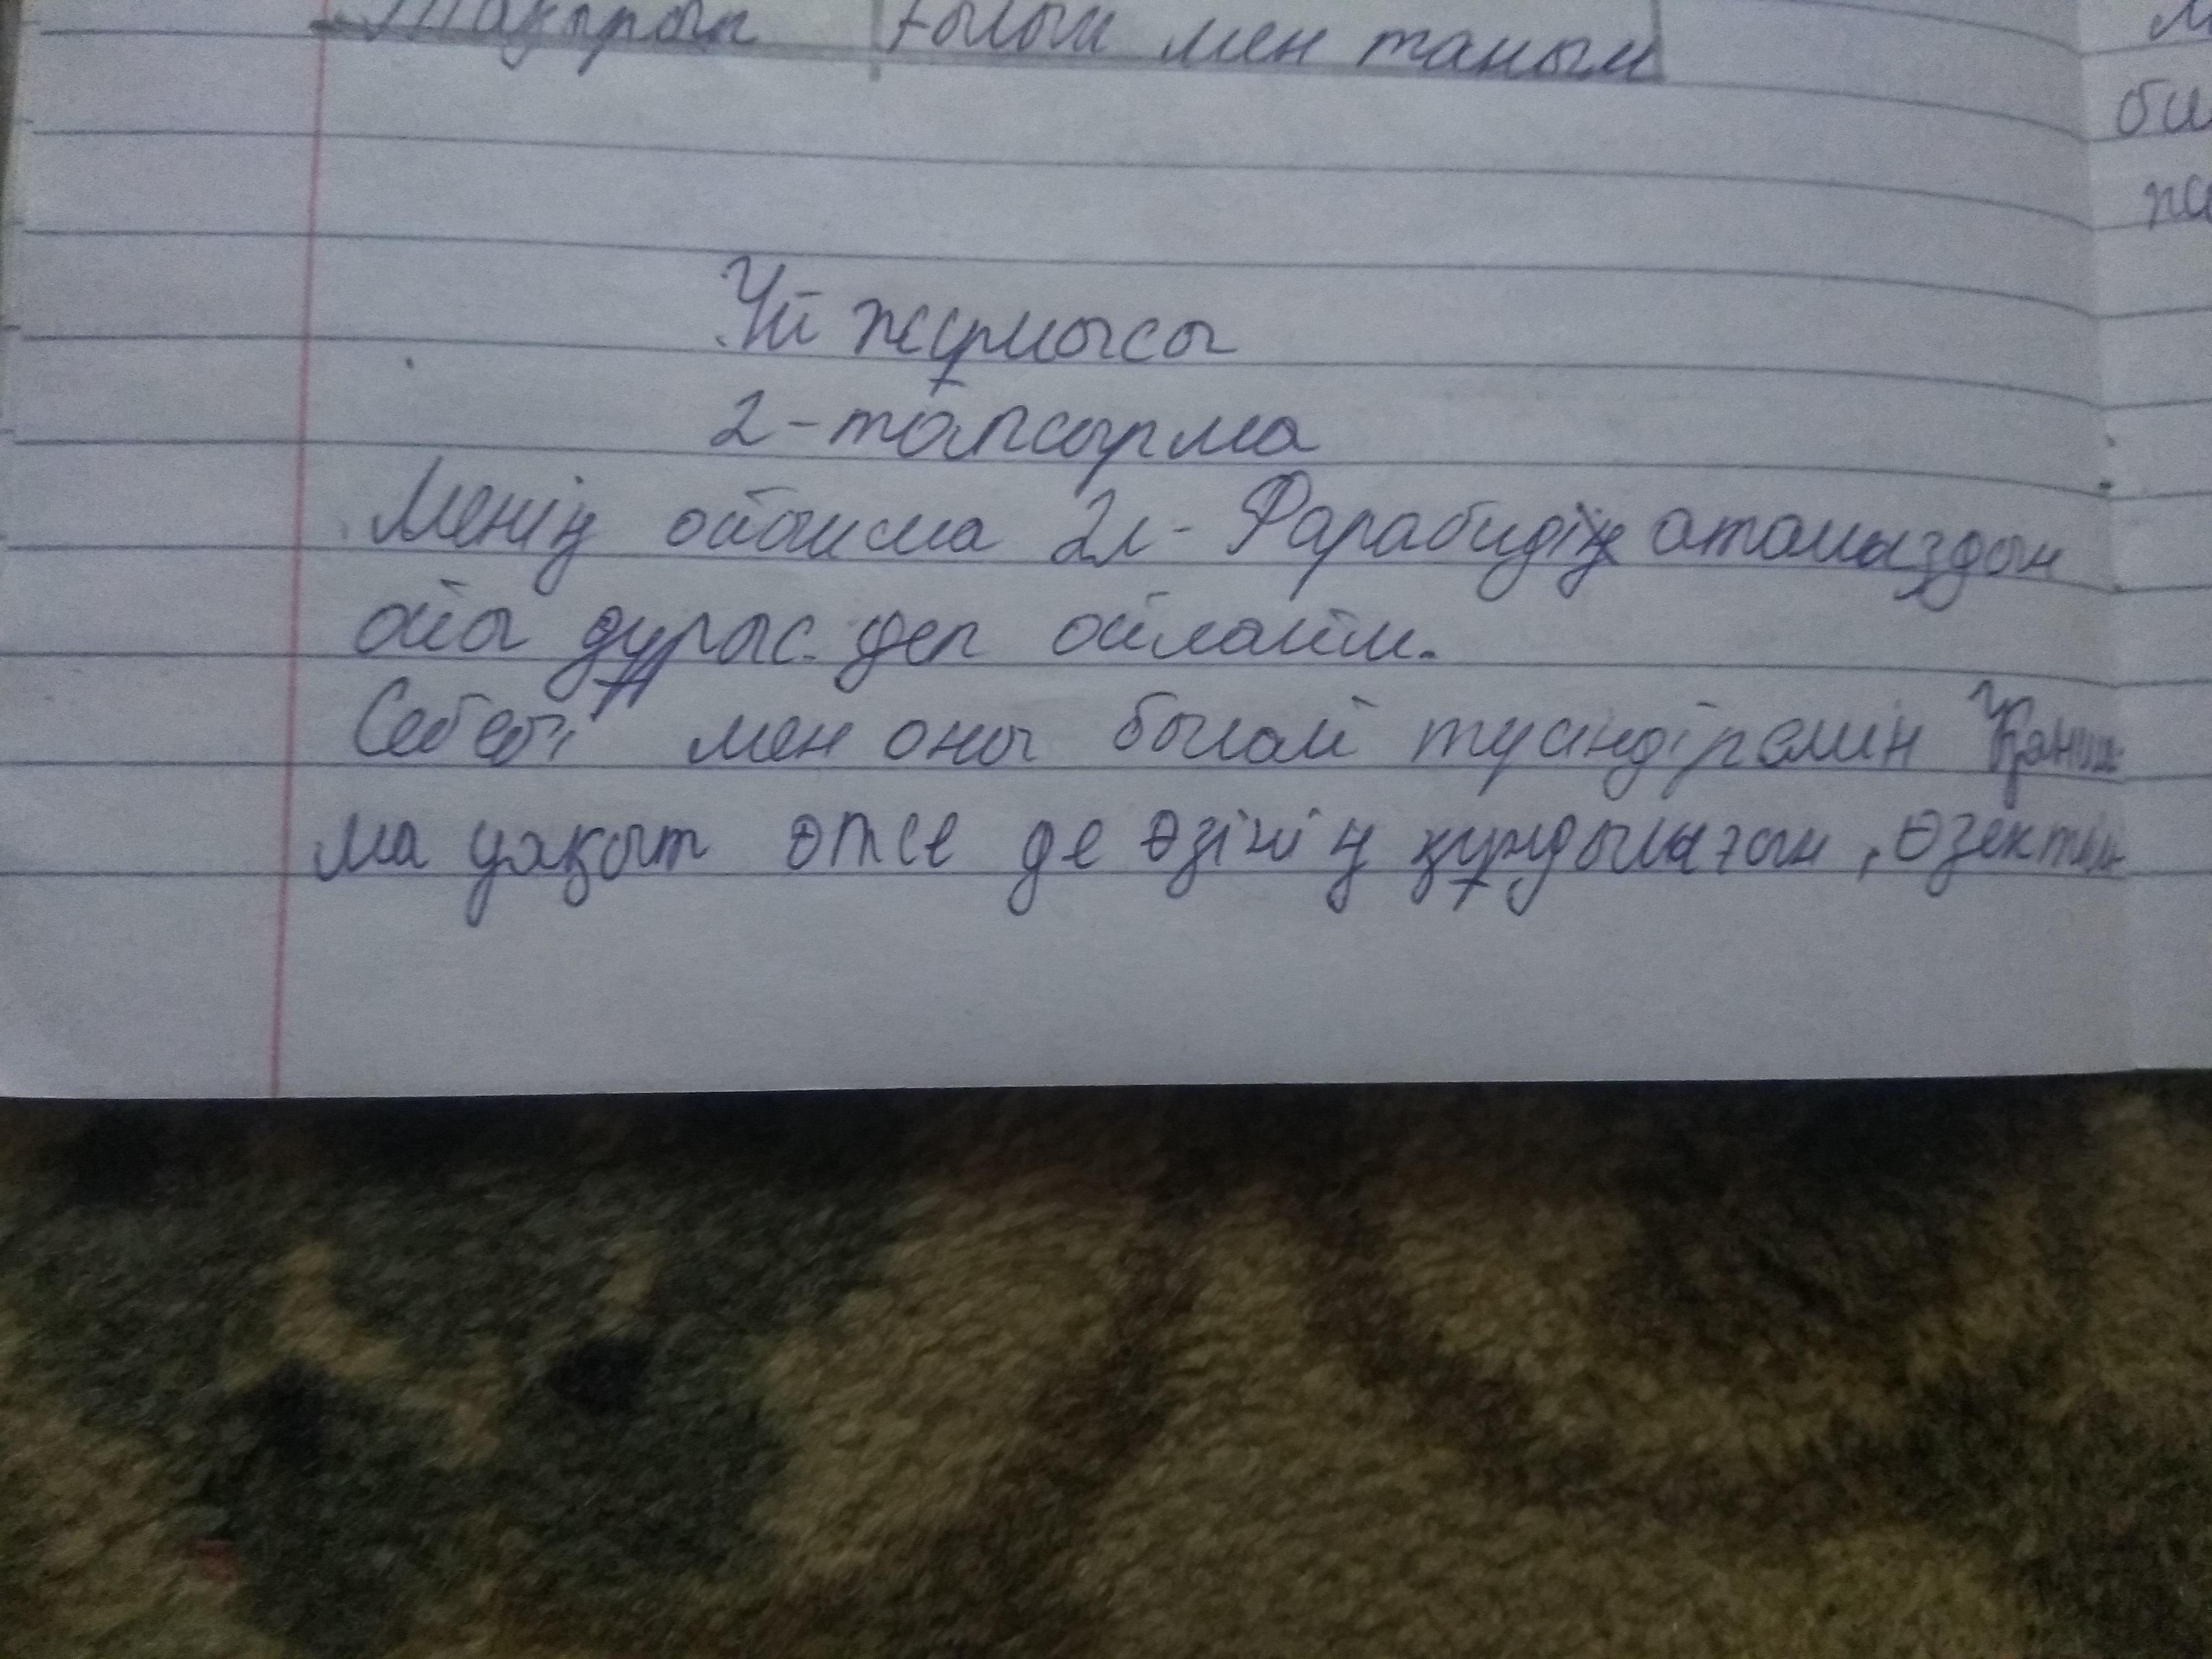 Тақырып ғылым мен таным
Үй жұмысы
2-тапсырма
Менің ойымша Әл-Фарабидің атамыздын
ойы дұрыс деп ойлаймн.
Себебі мен оны былай түсіндіремін Қанш
ма уақыт өтсе де өзінің құндылығын, өзектін